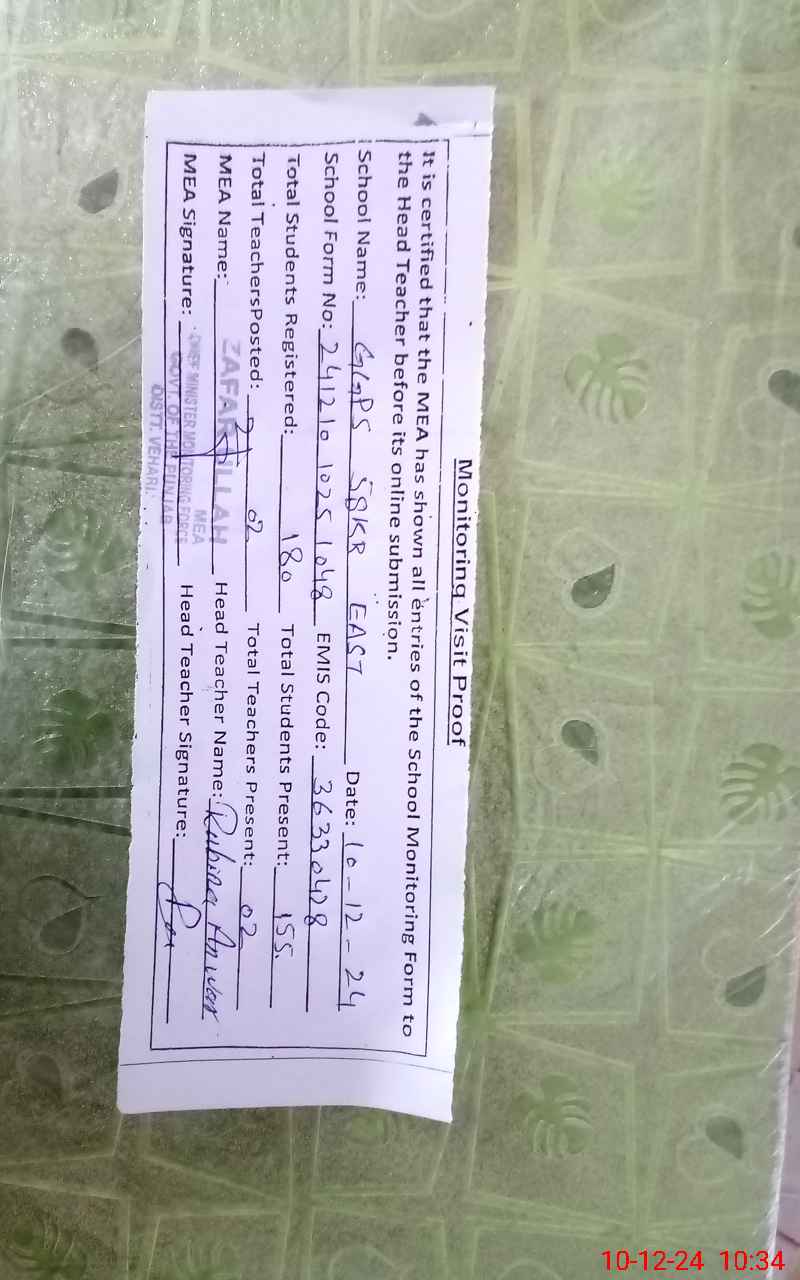 Monitoring Visit Proof
It is certified that the MEA has shown all entries of the School Monitoring Form to
the Head Teacher before its online submission.
School Name: GGPS 58KB EAST Date: 10-12-24
School Form No: 2412101025 1048 EMIS Code: 36330428
Total Students Registered: 180 Total Students Present: 155
Total TeachersPosted: 02 Total Teachers Present: 02
MEA Name: ZAFAR ULLAH Head Teacher Name: Rubina Anwar
MEA Signature: Head Teacher Signature:
MEA
CHIEF MINISTER MONITORING FORCE
GOVT. OF THE PUNJAB
DISTT. VEHARI.
10-12-24 10:34